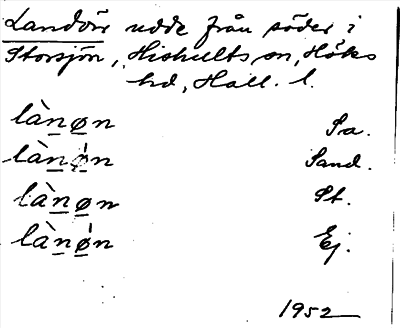 Landön udde från söder i
Storsjön, Hishults sn, Höks
hd, Hall. l.
là̀nøn Sa.
là̀nø̍n Sand.
là̀nøn St.
là̀nø̍n Ej.
1952